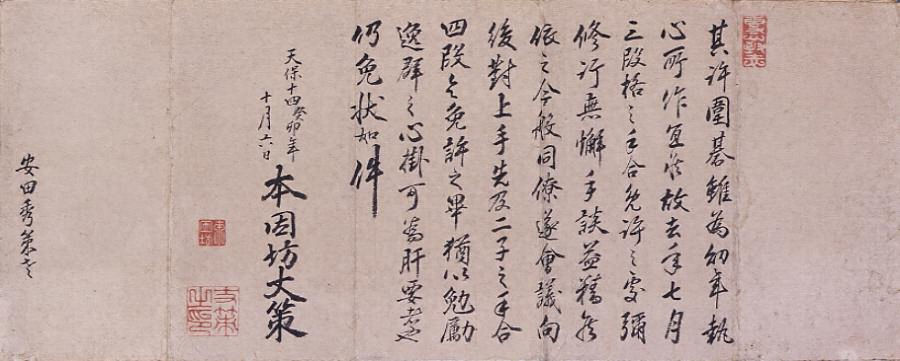 其許圍碁雖為幼年執
心所作宜候故去年七月
三段格之手合免許之処彌
修行無懈手談益精候
依之今般同僚遂會議向
後對上手先及二子之手合
四段令免許之畢猶以勉勵
逸群之心掛可為肝要者也
仍免状如件
天保十四癸卯年
十月六日
本因坊丈策
安田秀策との